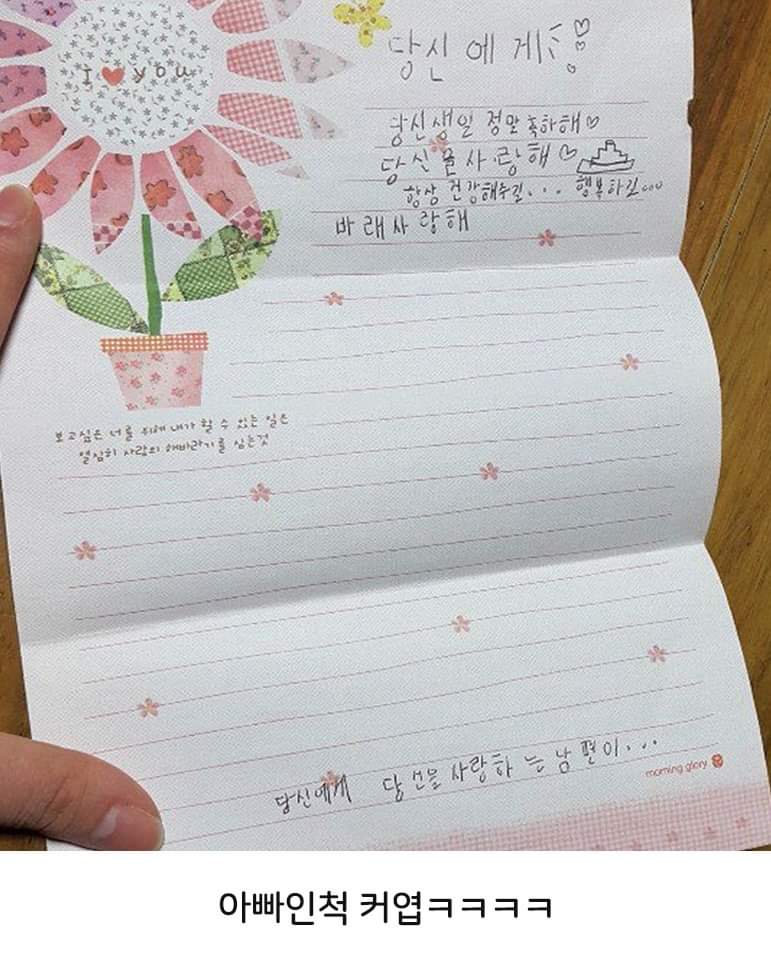 I ♥ you
당신에게
당신생일 정말 축하해♡
당신을사랑해♡
항상 건강해주길... 행복하길...
바래사랑해
보고싶은 너를 위해 내가 할 수 있는 일은
열심히 사랑의 해바라기를 심는것
당신에게 당신을사랑하는남편이...
morning glory
아빠인척 커엽ㅋㅋㅋㅋ